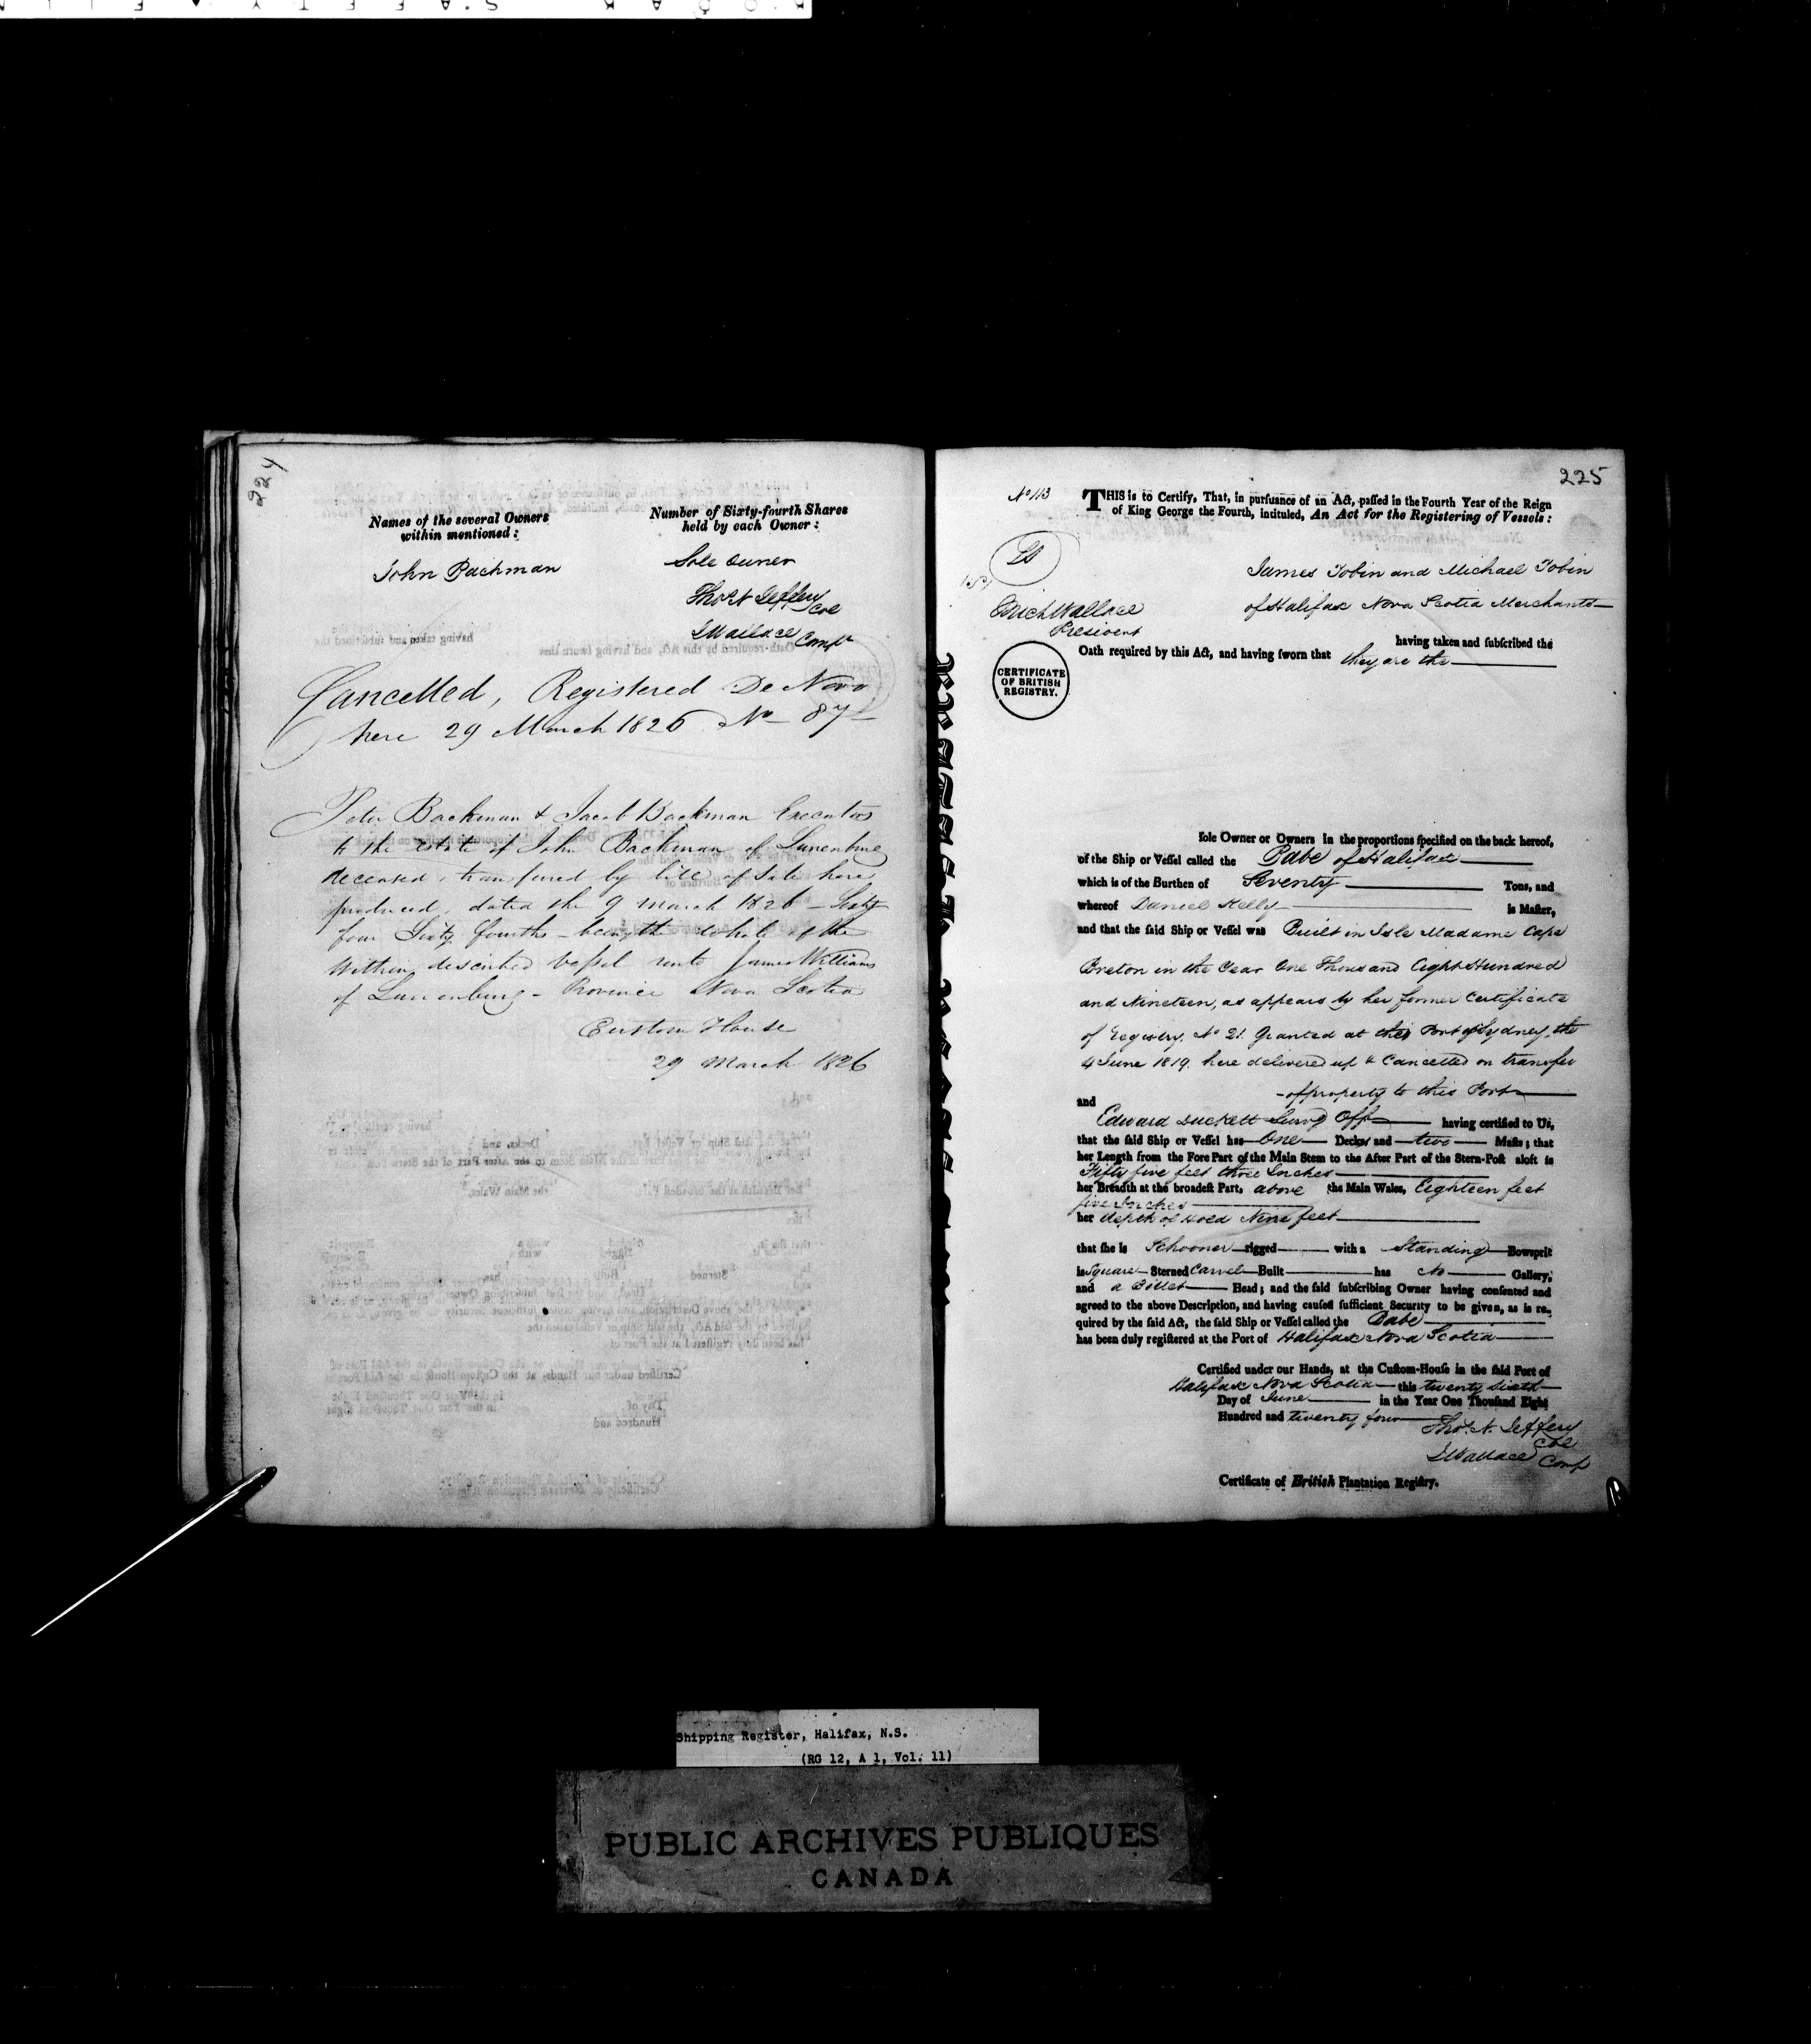 224
Names of the several Owners
within mentioned :
Number of Sixty-fourth Shares
held by each Owner :
John Bachman
Sole Owner
Thos N Jeffery
Col
J Wallace Compr
Cancelled, Registered De Novo
here 29 March 1826 No 87
Peter Backman & Jacob Backman Executors
to the Estate of John Backman of Lunenburg
deceased, transfered by bill of Sale here
produced, dated the 9 March 1826 – Sixty
four Sixty fourths – being the whole of the
Within described Vessel unto James Williams
of Lunenburg – Province Nova Scotia
Custom House
29 March 1826
225
No 113
THIS is to Certify, That, in purſuance of an Act, paſſed in the Fourth Year of the Reign
of King George the Fourth, intituled, An Act for the Registering of Vessels :
LS
James Tobin and Michael Tobin
of Halifax Nova Scotia Merchants
Michl Wallace
President
having taken and ſubſcribed the
Oath required by this Act, and having ſworn that they are the
CERTIFICATE
OF BRITISH
REGISTRY.
ſole Owner or Owners in the proportions ſpecified on the back hereof,
of the Ship or Veſſel called the Babe of Halifax
which is of the Burthen of Seventy Tons, and
whereof Daniel Kelly is Maſter,
and that the ſaid Ship or Veſſel was Built in Isle Madame Cape
Breton in the Year One Thousand Eight Hundred
and Nineteen, as appears by her former Certificate
of Registry, No 21. Granted at the Port of Sydney, the
4 June 1819. here delivered up & Cancelled on transfer
of property to this Port
and
Edward Duckett Survg Offr having certified to Us,
that the ſaid Ship or Veſſel has One Decks and two Maſts ; that
her Length from the Fore Part of the Main Stem to the After Part of the Stern-Poſt aloft is
Fifty five feet three Inches
her Breadth at the broadeſt Part, above the Main Wales, Eighteen feet
five Inches
her depth of Hold Nine feet
that ſhe is Schooner rigged with a Standing Bowsprit
is Square Sterned Carvel Built has No Gallery,
and a Billet Head ; and the ſaid ſubſcribing Owner having conſented and
agreed to the above Deſcription, and having cauſed ſufficient Security to be given, as is re-
quired by the ſaid Act, the ſaid Ship or Veſſel called the Babe
has been duly regiſtered at the Port of Halifax Nova Scotia
Certified under our Hands, at the Cuſtom-Houſe in the ſaid Port of
Halifax Nova Scotia this twenty sixth
Day of June in the Year One Thouſand Eight
Hundred and twenty four
Thos. N. Jeffery
Col
J Wallace Comp
Certificate of British Plantation Regiſtry.
Shipping Register, Halifax, N.S.
(RG 12, A 1, Vol. 11)
PUBLIC ARCHIVES PUBLIQUES
CANADA